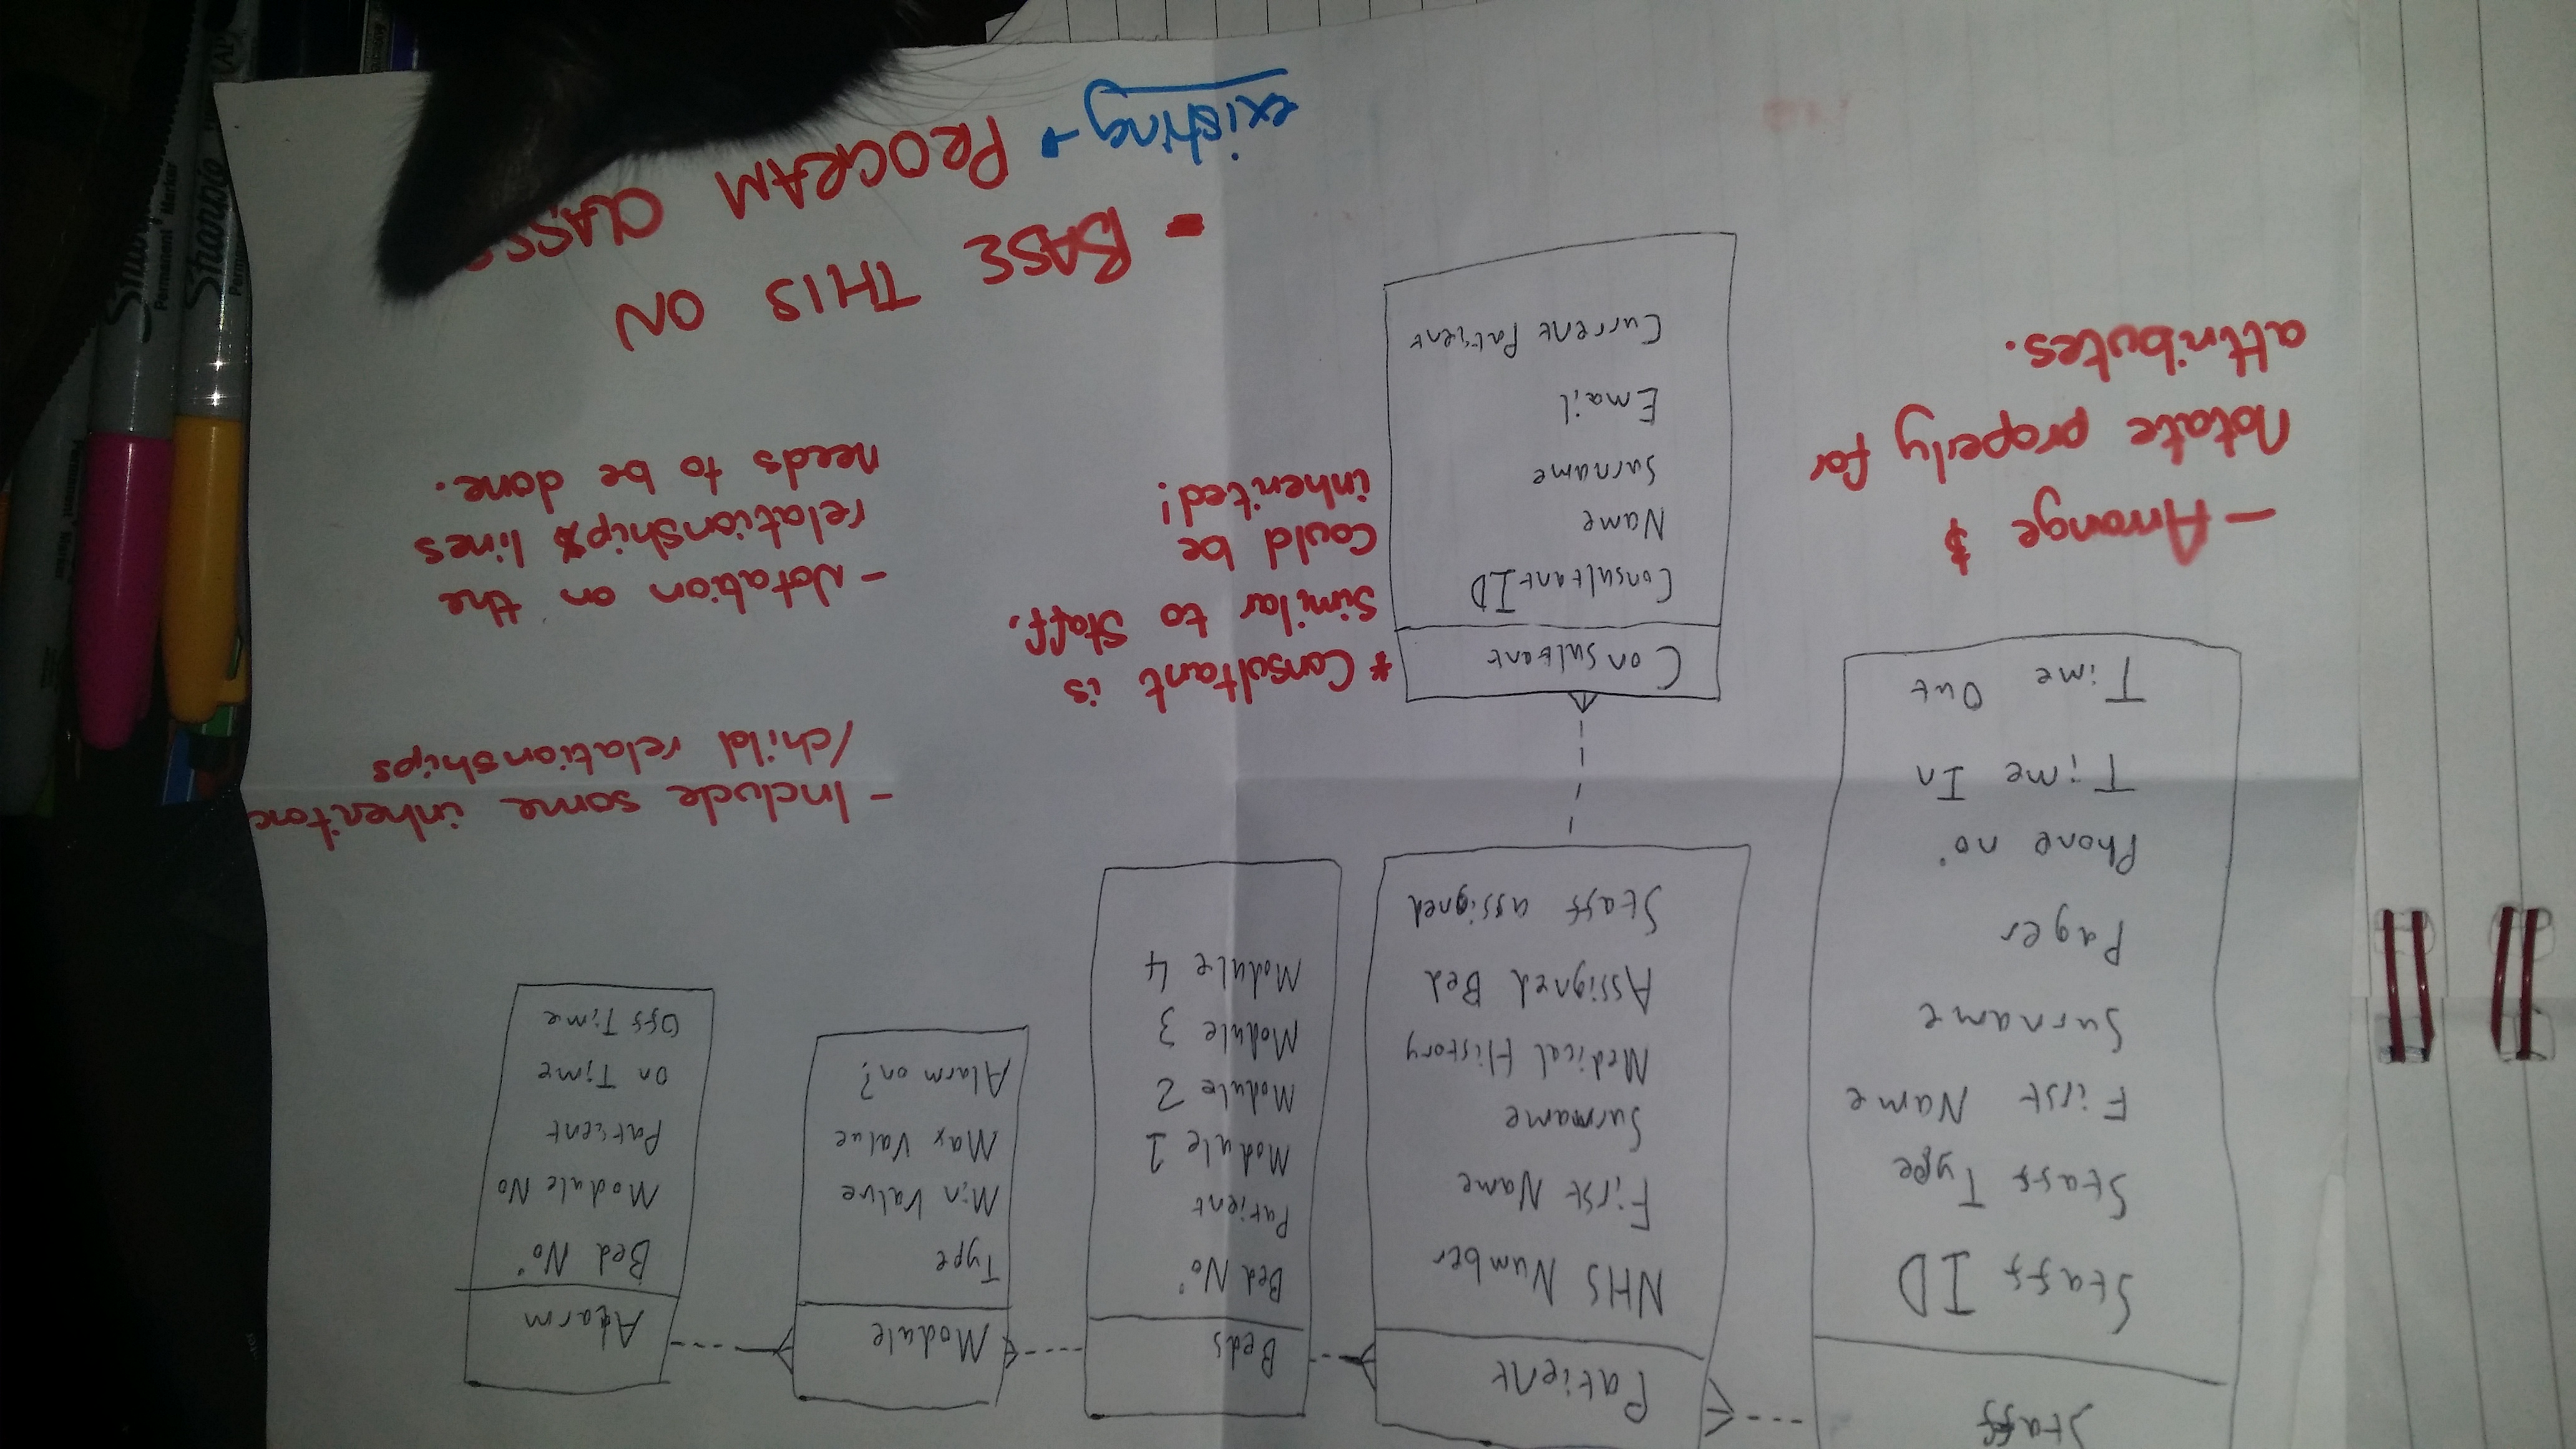 Staff
Staff ID
Staff Type
First Name
Surname
Pager
Phone no.
Time In
Time Out
Patient
NHS Number
First Name
Surname
Medical History
Assigned Bed
Staff assigned
Beds
Bed No.
Patient
Module 1
Module 2
Module 3
Module 4
Module
Type
Min Value
Max Value
Alarm on?
Alarm
Bed No.
Module No
Patient
On Time
Off Time
Consultant
ConsultantID
Name
Surname
Email
Current Patient
- Arrange &
Notate properly for
attributes.
* Consultant is
Similar to staff,
Could be
inherited!
- Include some
/child relationships
- Notation on the
relationships lines
needs to be done.
- BASE THIS ON
existing → PROGRAM
Sharpie
Permanent Marker
Sharpie
Permanent Marker